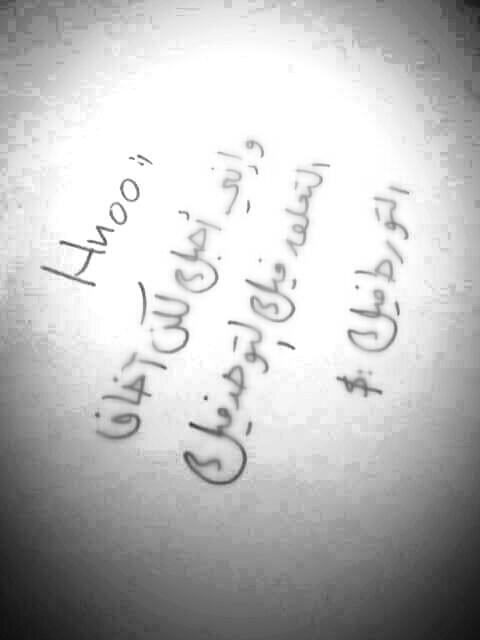 Hnoo ;;
وإني أحبك لكن أخاف
التعلق فيك , التوحد فيك
التورط فيك :$